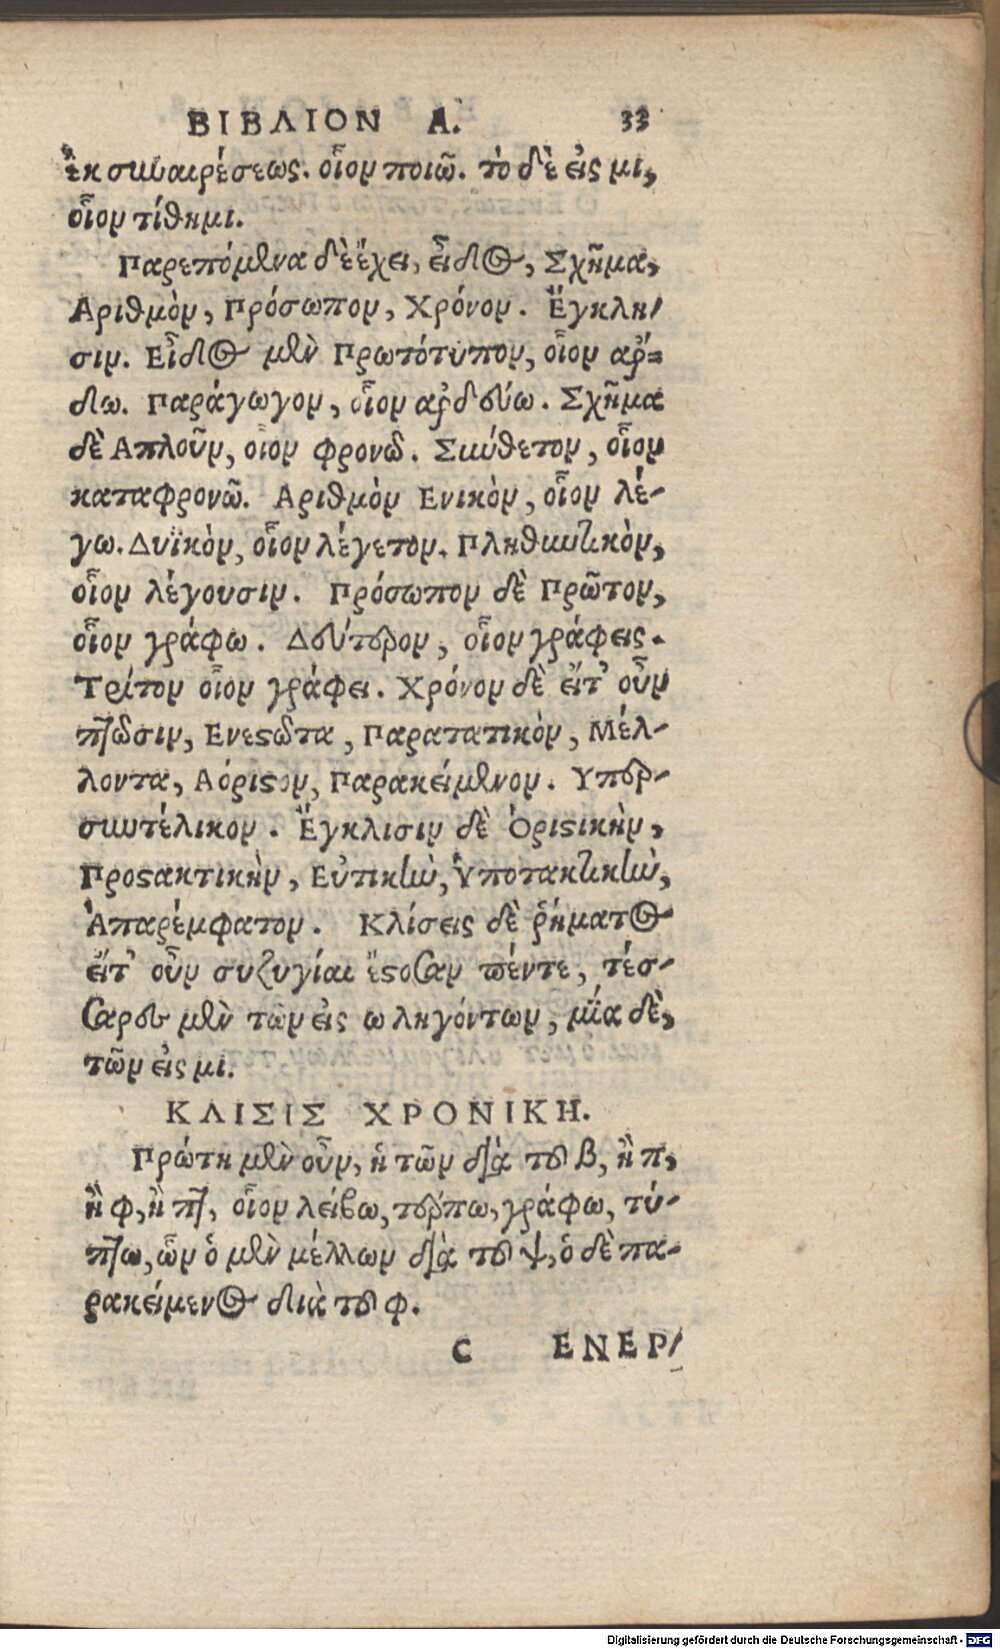 ΒΙΒΛΙΟΝ Α. 33
ἐκ συναιρέσεως. οἷον ποιῶ. τὸ δὲ εἰς μι,
οἷον τίθημι.
Παρεπόμενα δὲ ἔχει, εἶδος, Σχῆμα,
Αριθμὸν, Πρόσωπον, Χρόνον. Ἔγκλη/
σιν. Εἶδος μὲν Πρωτότυπον, οἷον ἄρ=
δω. Παράγωγον, οἷον ἀρδεύω. Σχῆμα
δὲ Απλοῦν, οἷον φρονῶ. Σιωύθετον, οἷον
καταφρονῶ. Αριθμὸν Ενικὸν, οἷον λέ-
γω. Δυϊκὸν, οἷον λέγετον. Πληθιωτικὸν,
οἷον λέγουσιν. Πρόσωπον δὲ Πρῶτον,
οἷον γράφω. Δεύτερον, οἷον γράφεις.
Τρίτον οἷον γράφει. Χρόνον δὲ εἴτ' οὖν
πτῶσιν, Ενεϛῶτα, Παρατατικὸν, Μέλ-
λοντα, Αόριϛον, Παρακείμενον. Υπερ-
σιωτέλικον. Ἔγκλισιν δὲ Ὁριϛικὴν,
Προϛακτικὴν, Εὐτικὴν, Ὑποτακτικὴν,
Ἀπαρέμφατον. Κλίσεις δὲ ῥήματος
εἴτ' οὖν συζυγίαι ἔϛοσαν πέντε, τέσ-
σαρες μὲν τῶν εἰς ω ληγόντων, μία δὲ,
τῶν εἰς μι.
ΚΛΙΣΙΣ ΧΡΟΝΙΚΗ.
Πρώτη μὲν οὖν, ἡ τῶν διὰ τοῦ β, ἢ π,
ἢ φ, ἢ πτ, οἷον λείβω, τέρπω, γράφω, τύ-
πτω, ὧν ὁ μὲν μέλλων διὰ τοῦ ψ, ὁ δὲ πα-
ρακείμενος διὰ τοῦ φ.
C ΕΝΕΡ/
Digitalisierung gefördert durch die Deutsche Forschungsgemeinschaft - DFG